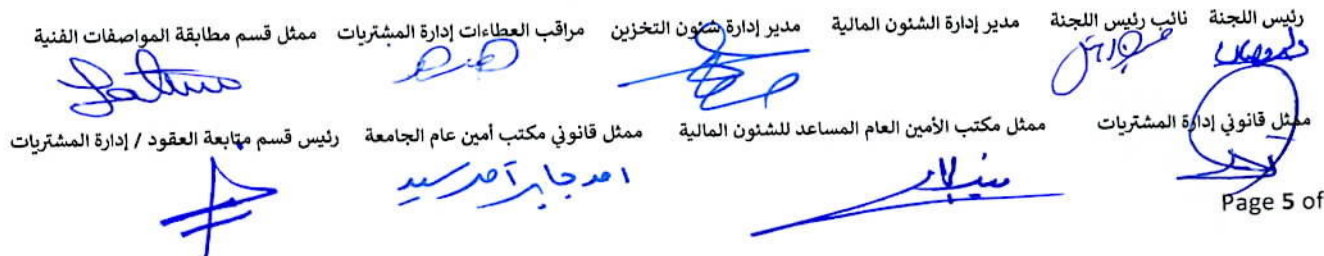 رئيس اللجنة نائب رئيس اللجنة مدير إدارة الشئون المالية مدير إدارة شئون التخزين مراقب العطاءات إدارة المشتريات ممثل قسم مطابقة المواصفات الفنية
ممثل قانوني إدارة المشتريات ممثل مكتب الأمين العام المساعد للشئون المالية ممثل قانوني مكتب أمين عام الجامعة رئيس قسم متابعة العقود / إدارة المشتريات
احمد جابر احمد سيد
Page 5 of